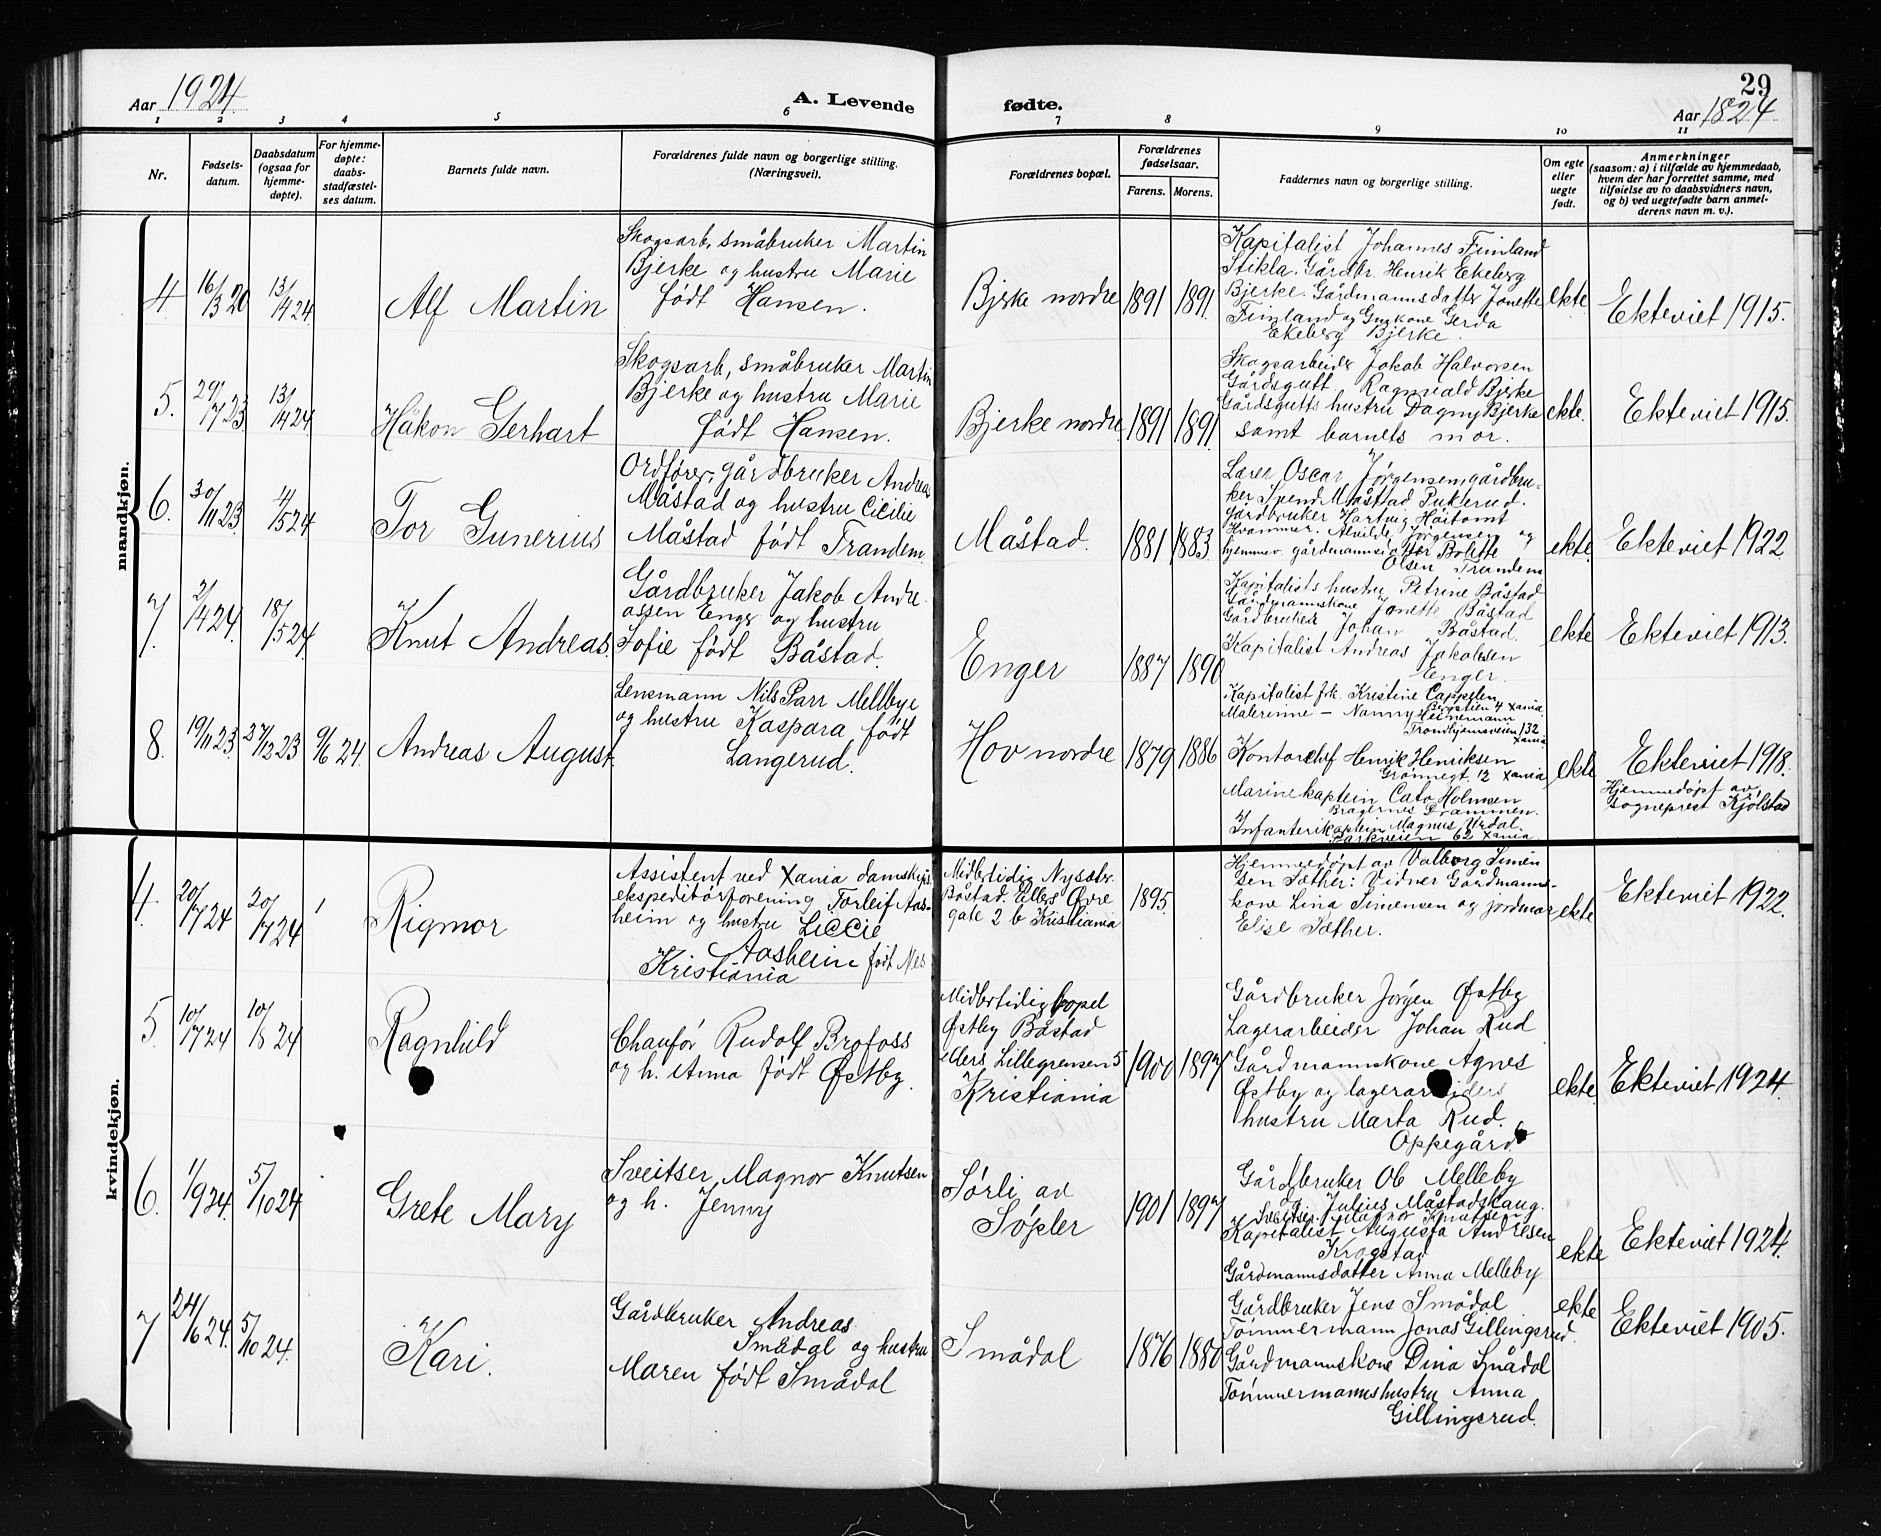 Aar 1924
A. Levende fødte.
29
Aar 1824.
1 2 3 4 5 6 7 8 9 10 11
Nr.
Fødsels-
datum.
Daabsdatum
(ogsaa for
hjemme-
døpte).
For hjemme-
døpte:
daabs-
stadfæstel-
ses datum.
Barnets fulde navn.
Forældrenes fulde navn og borgerlige stilling.
(Næringsvei).
Forældrenes bopæl.
Forældrenes
fødselsaar.
Farens. Morens.
Faddernes navn og borgerlige stilling.
Om egte
eller
uegte
født.
Anmerkninger
(saasom: a) i tilfælde av hjemmedaab,
hvem der har forrettet samme, med
tilføielse av to daabsvidners navn,
og b) ved uegtefødte barn anmel-
derens navn m. v.).
mandkjøn.
4
16/3 20
13/4 24.
Alf Martin
Skogsarb, småbruker Martin
Bjerke og hustru Marie
født Hansen.
Bjerke nordre
1891
1891.
Kapitalist Johannes Finland
Stikla. Gårdbr. Henrik Ekeberg
Bjerke. Gårdmannsdatter Jonette
Finland og Gmkone Gerda
Ekeberg Bjerke.
ekte.
Ekteviet 1915.
5.
29/7 23
13/4 24.
Håkon Gerhart
Skogsarb, småbruker Martin
Bjerke og hustru Marie
født Hansen.
Bjerke nordre
1891
1891
Skogsarbeider Jakob Halvorsen
Gårdsgutt Ragnvald Bjerke
Gårdsgutts hustru Dagny Bjerke
samt barnets mor.
ekte.
Ekteviet 1915.
6.
30/11 23.
4/5 24
Tor Gunerius
Ordfører, gårdbruker Andreas
Måstad og hustru Cicilie
Måstad født Trandem.
Måstad.
1881
1883.
Lærer Oscar Jørgensen, gårdbru-
ker Svend Måstad Puklerud.
Gårdbruker Hartvig Høitomt
Hvammer. Alvilde Jørgensen og
hjemmev. gårdmannsdatter Bolette
Olsen Trandem
ekte.
Ekteviet 1922
7.
2/4 24.
18/5 24.
Knut Andreas.
Gårdbruker Jakob Andre-
assen Enger og hustru
Sofie født Båstad.
Enger
1887
1890
Kapitalists hustru Petrine Båstad
Gårdmannskone Jonette Båstad
Gårdbruker Johan Båstad.
Kapitalist Andreas Jakobsen
Enger.
ekte
Ekteviet 1913.
8.
19/11 23.
27/12 23
9/6 24.
Andreas August.
Lensmann Nils Parr Mellbye
og hustru Kaspara født
Langerud.
Hov nordre
1879
1886
Kapitalist frk. Kristine Cappelen
Bergstien 4 Xania.
Malerinne – Nanny Heinemann
Trondhjemsveien 132
Xania
Kontorchef Henrik Henriksen
Grønnegt. 12 Xania
Marinekaptein Cato Holmsen
Bragernes Drammen.
Infanterikaptein Magnus Urdal.
Parkveien 62 Xania.
ekte
Ekteviet 1918.
Hjemmedøpt av
sogneprest Kjølstad
kvindekjøn.
4.
20/7 24
20/7 24
Rigmor
Assistent ved Xania damskips-
ekspeditørforening Torleif Aas-
heim og hustru Liccie
Aasheim født Nes
Kristiania
Midlertidig Nysæter
Båstad. Ellers Øvre
gate 2 b Kristiania
1895.
Hjemmedøpt av Valborg Simen
sen Tæther: Vidner Gårdmanns-
kone Lina Simensen og jordmor
Elise Tæther.
ekte
Ekteviet 1922.
5.
10/7 24
10/8 24
Ragnhild
Chauför Rudolf Brofoss
og h. Anna født Østby.
Midlertidig bopel
Østby Båstad
ellers Lillegrensen 5
Kristiania
1900
1897
Gårdbruker Jørgen Østby
Lagerarbeider Johan Rud
Gårdmannskone Agnes
Østby og lagerarbeiders
hustru Marta Rud.
Oppegård
ekte.
Ekteviet 1924.
6.
1/9 24.
5/10 24
Grete Mary
Sveitser Magnor Knutsen
og h. Jenny
Sørli av
Søpler
1901
1897
Gårdbruker Ob Melleby
og Julius Måstadhaug.
Sveitser Magnor Knutsen
Kapitalist Augusta Andresen
Krogstad
Gårdmannsdatter Anna Melleby
ekte
Ekteviet 1924.
7
24/6 24.
5/10 24.
Kari.
Gårdbruker Andreas
Smådal og hustru
Maren født Smådal
Smådal
1876
1880
Gårdbruker Jens Smådal
Tømmermann Jonas Gillingsrud.
Gårdmannskone Dina Smådal
Tømmermannshustru Anna
Gillingsrud.
ekte
Ekteviet 1905.